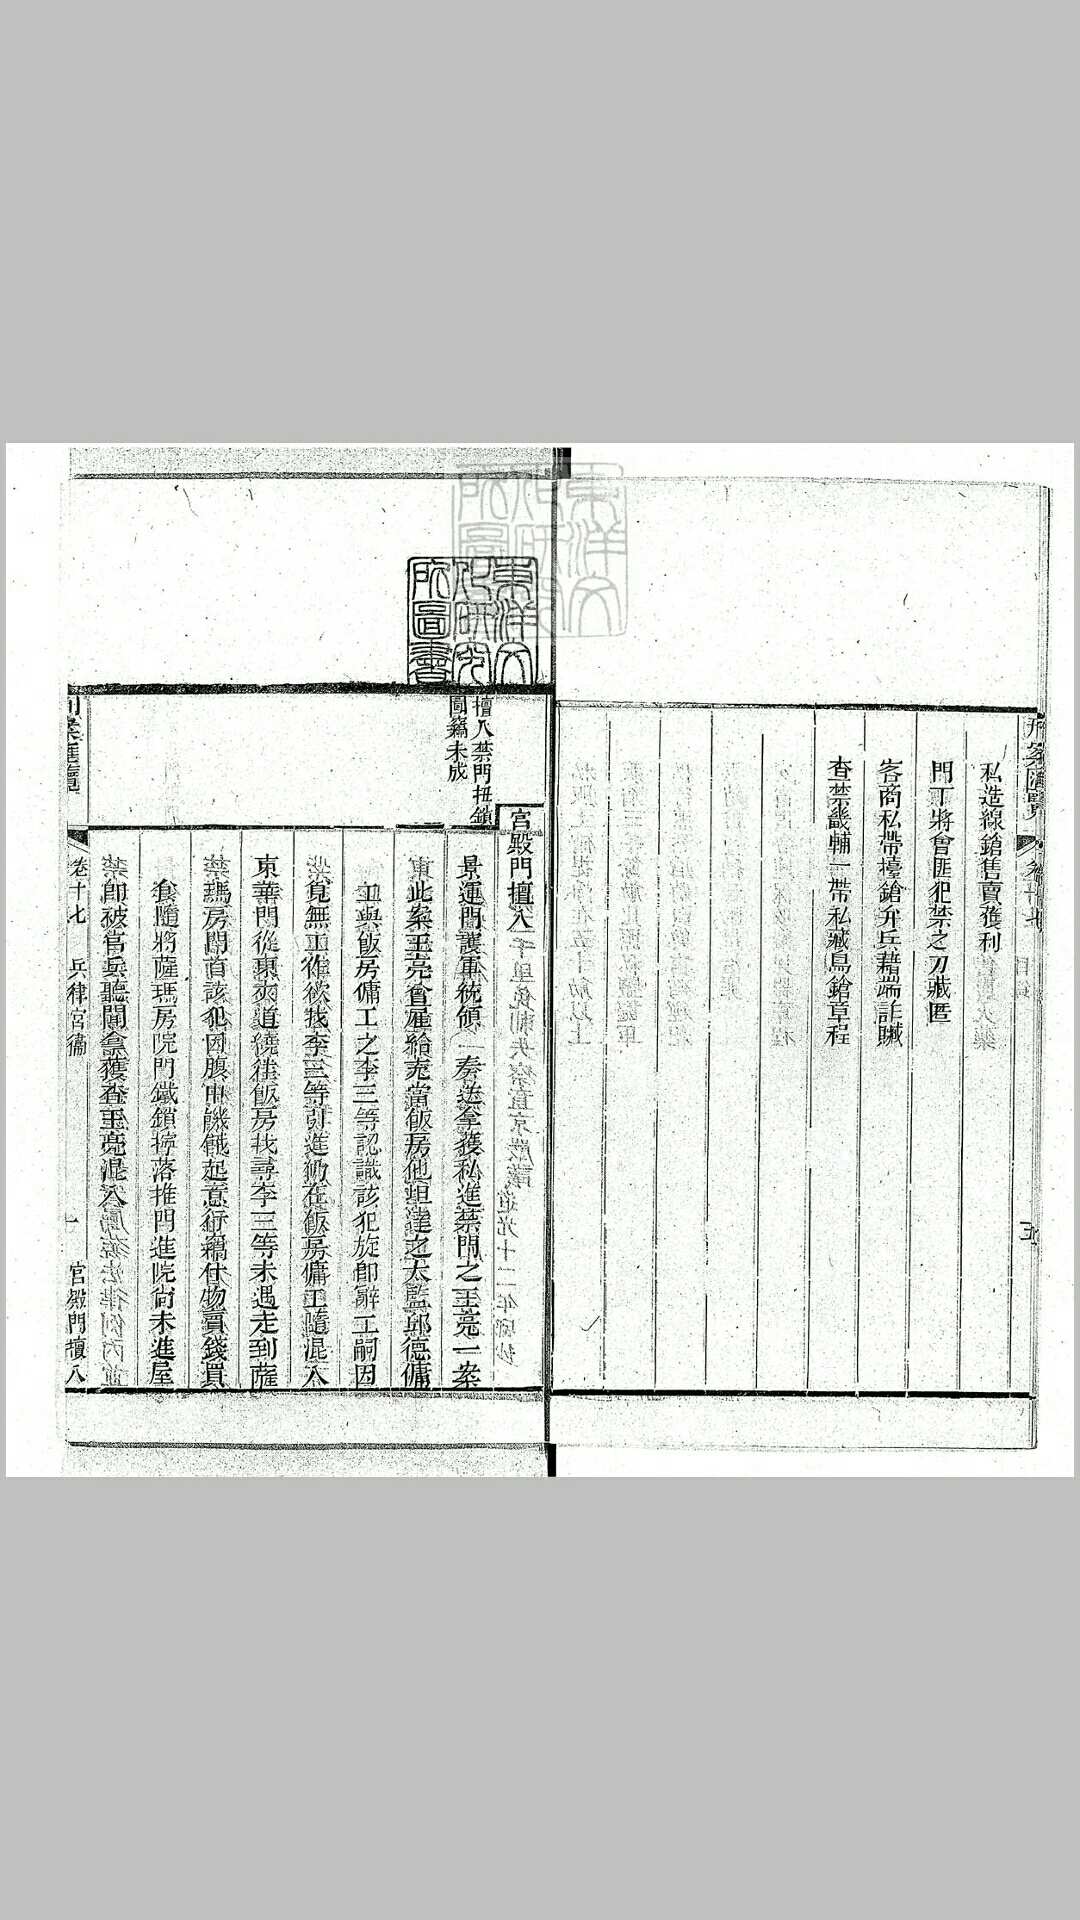 刑案匯覽
卷十七
目錄
五
私造線鎗售賣獲利
門丁將會匪犯禁之刀藏匿
客商私帶擡鎗弁兵藉端詐贓
查禁畿輔一帶私藏鳥鎗章程
東洋文
化研究
所圖書
擅入禁門扭鎖
圖竊未成
宮殿門擅入
景運門護軍統領 奏送拿獲私進禁門之王亮一案
此案王亮曾雇給充當飯房他坦達之太監邱德傭
工與飯房傭工之李三等認識該犯旋即辭工嗣因
覓無工作欲找李三等引進仍在飯房傭工隨混入
東華門從東夾道繞往飯房找尋李三等未遇走到薩
瑪房開首該犯因腹中饑餓起意行竊什物賣錢買
食隨將薩瑪房院門鐵鎖擰落推門進院尚未進屋
即被官兵聽聞拿獲查王亮混入
刑案匯覽
卷十七 兵律宮衛
一
宮殿門擅入